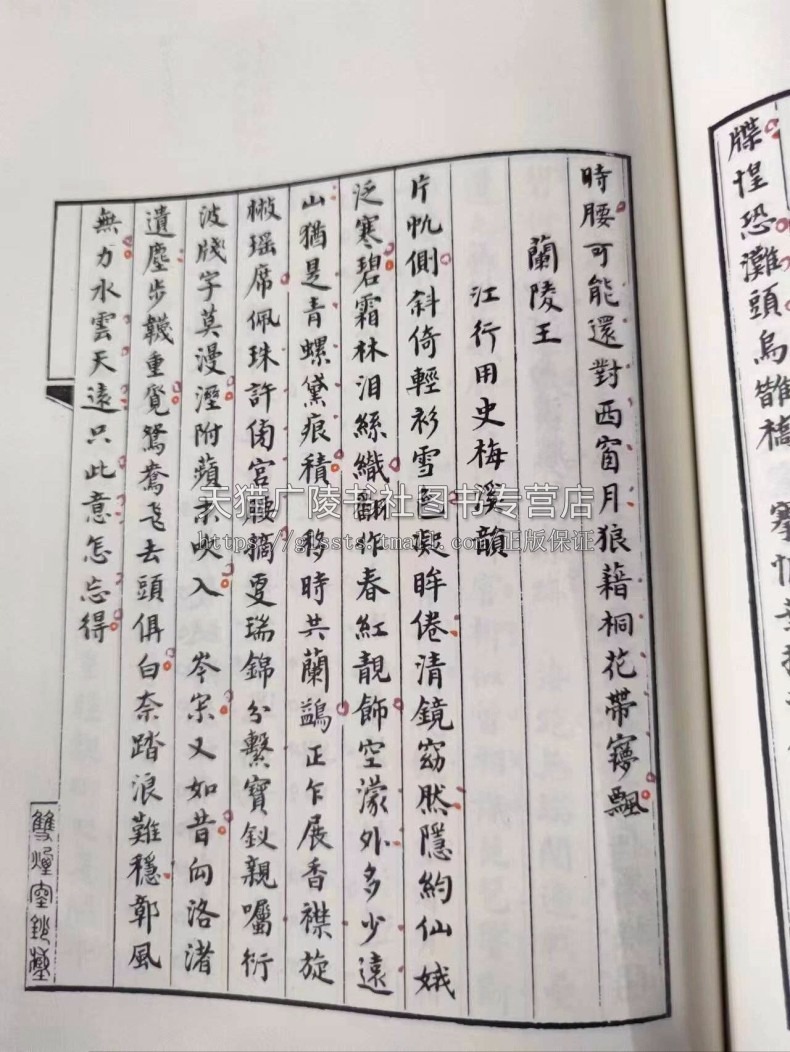 牒惶恐灘頭烏鵲橋
時腰可能還對西窗月狼藉桐花帶夢飄
蘭陵王
江行用史梅溪韻
片帆側斜倚輕衫雪色凝眸倦清鏡窈然隱約仙娥
泛寒碧霜林泪絲織翻作春紅靚飾空濛外多少遠
山猶是青螺黛痕積 移時共蘭鷁正乍展香襟旋
拂瑶席佩珠許傍宮腰摘更瑞錦分繫寶釵親囑衍
波牋字莫漫溼附蘋末吹入 岑宋又如昔向洛渚
遺塵步韈重覓鴛鴦飛去頭俱白奈踏浪難穩郭風
無力水雲天遠只此意怎忘得
天猫广陵书社图书专营店
正版保证